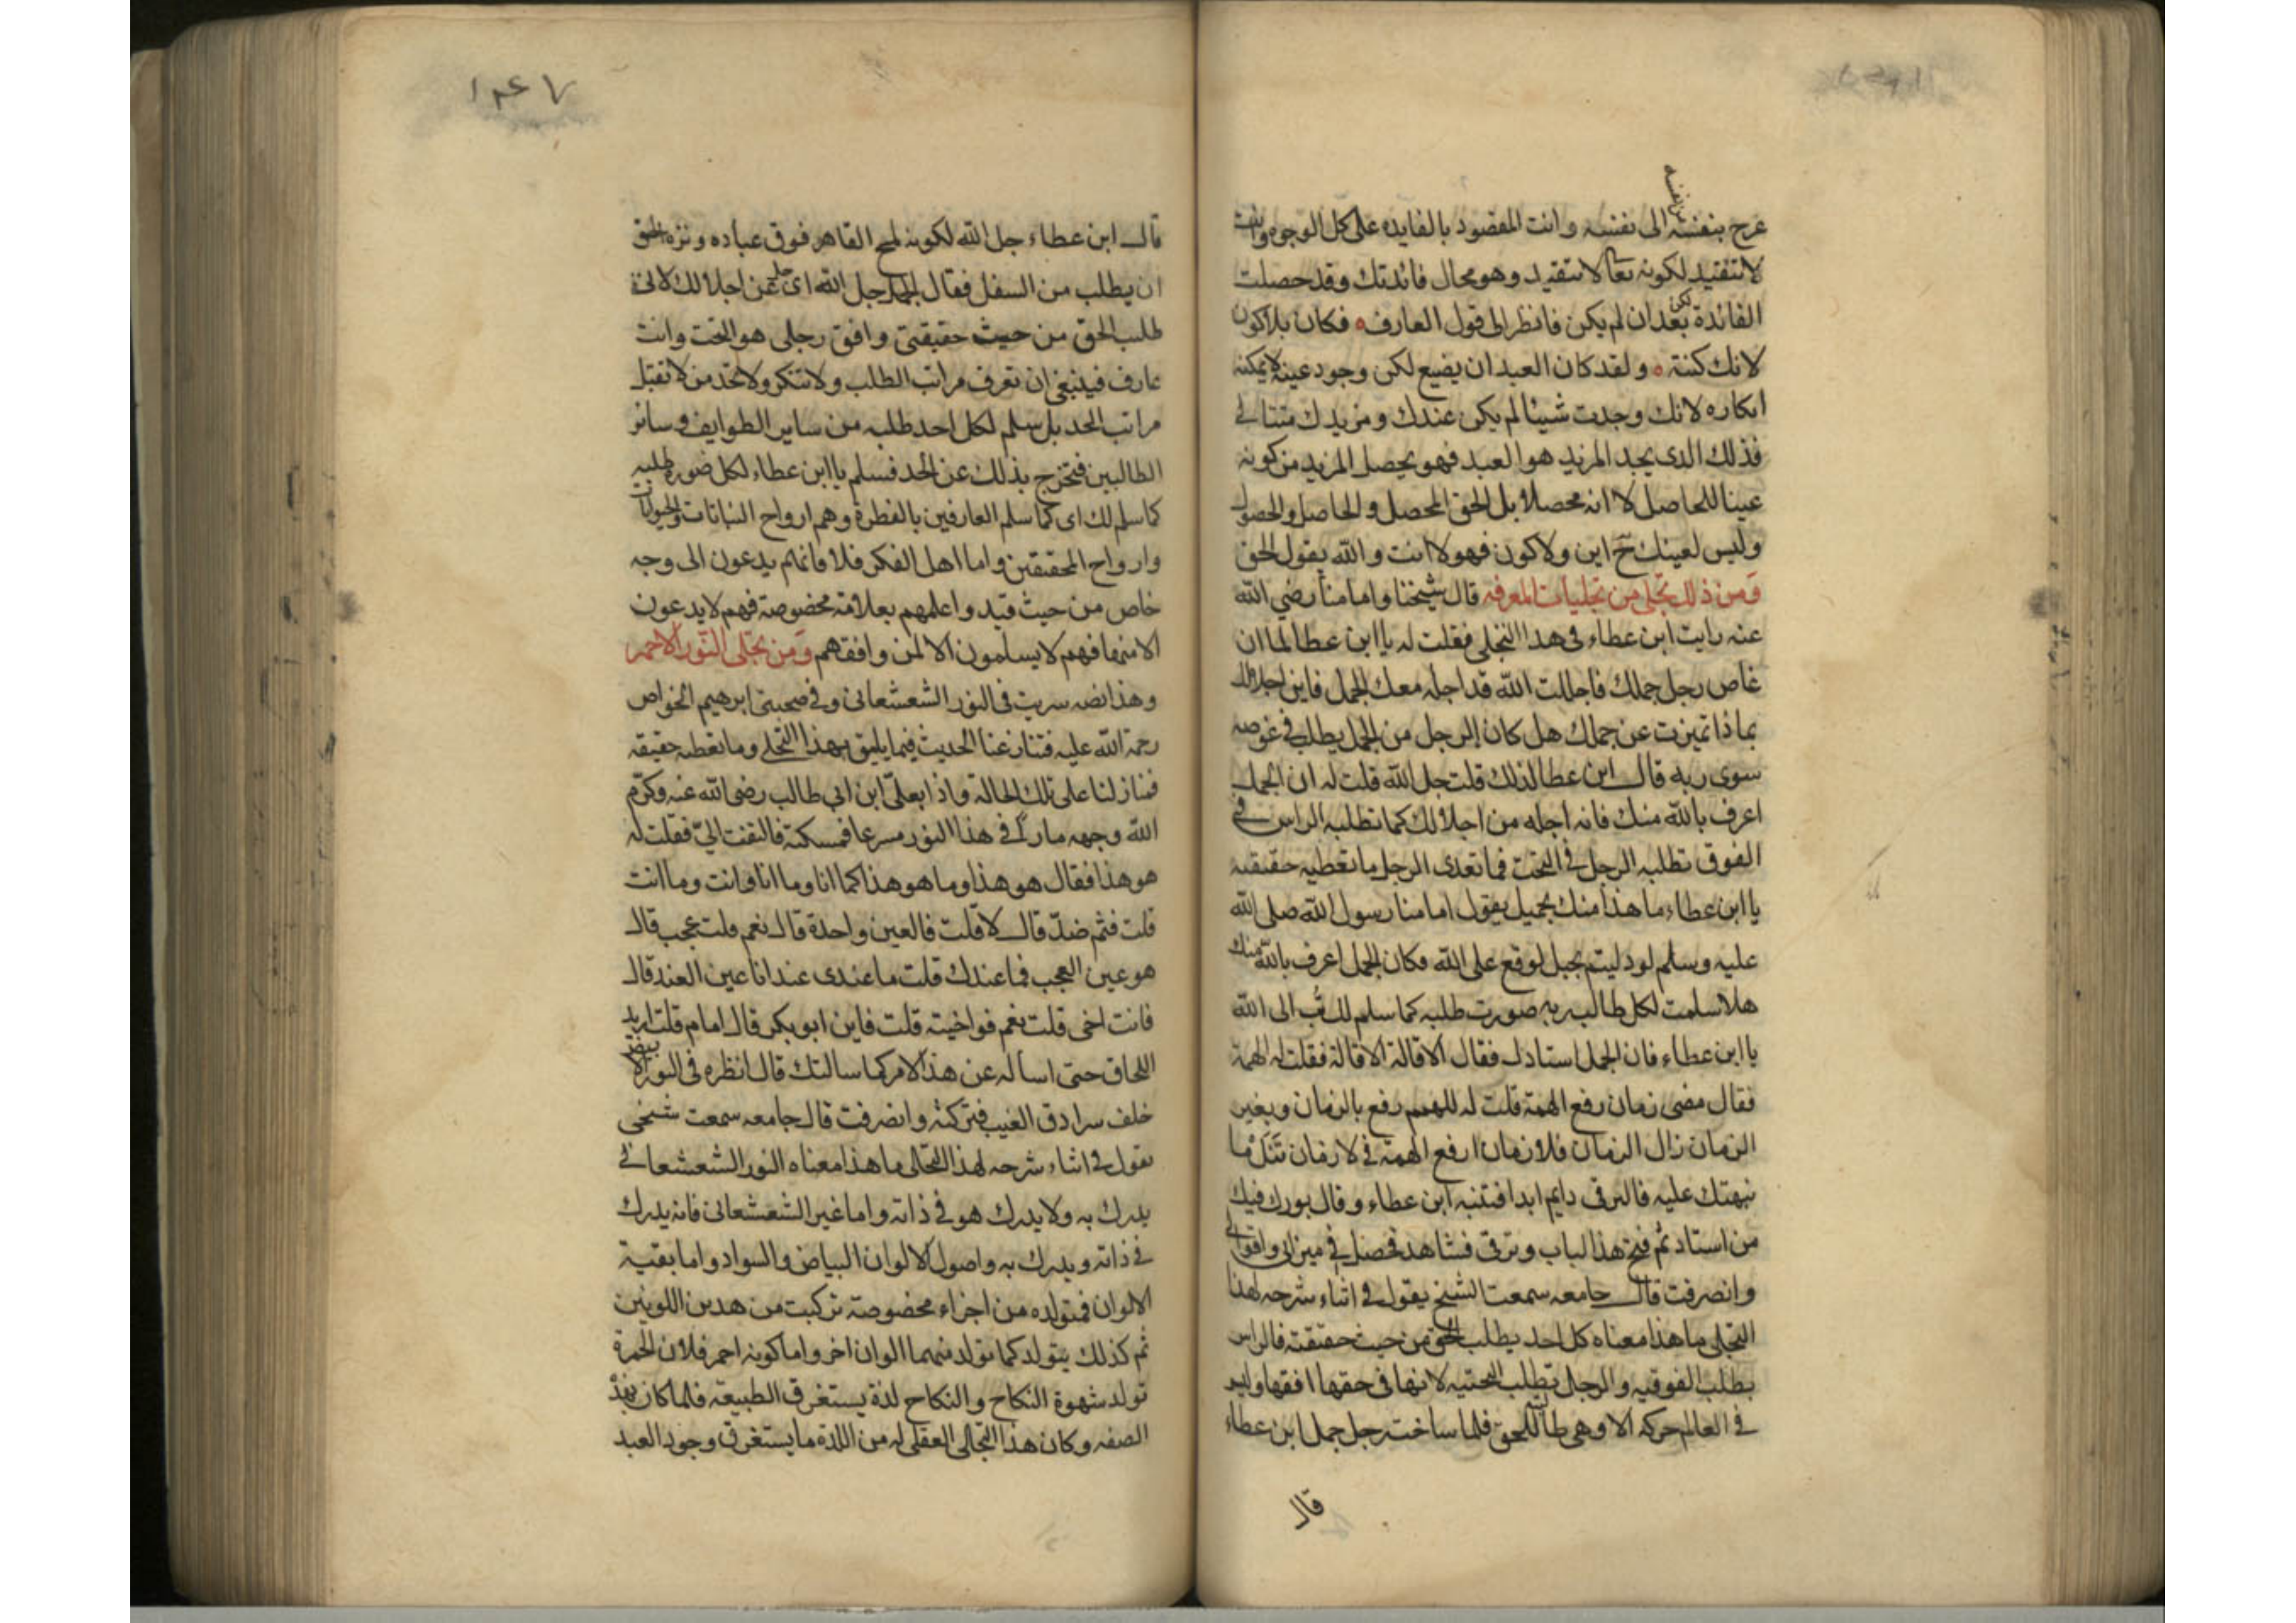 عرج بنفسه الى نفسه وانت المقصود بالفايده على كل الوجوه وانت
لا تتقيد لكونه تعالى لا يتقيد وهو محال فائدتك وقد حصلت
الفائدة بعد ان لم يكن فانظر الى قول العارف فكان بلا كون
لانك كنته ولقد كان العبد ان يضيع لكن وجود عينه لا يمكنه
انكاره لانك وجدت شيئا لم يكن عندك ومزيدك متتالي
فذلك الذى يجد المزيد هو العبد فهو يحصل المزيد من كونه
عينا للحاصل لا انه محصلا بل الحق المحصل والحاصل والحصول
وليس لعينك ح اين ولا كون فهو لا انت والله يقول الحق
ومن ذلك تجلى من تجليات المعرفه قال شيخنا وامامنا رضي الله
عنه رايت ابن عطاء فى هذا التجلي فقلت له يا ابن عطا لما ان
غاص رجل جملك فاجللت الله قد اجله معك الجمل فاين اجلالك
بماذا تميزت عن جملك هل كان الرجل من الجمل يطلب في غوصه
سوى ربه قال ابن عطا لذلك قلت جل الله قلت له ان الجمل
اعرف بالله منك فانه اجله من اجلالك كما تطلبه الراس في
الفوق تطلبه الرجل في التحت فما تعدى الرجل ما تعطيه حقيقته
يا ابن عطاء ما هذا منك بجميل يقول امامنا رسول الله صلى الله
عليه وسلم لو دليتم بحبل لوقع على الله فكان الجمل اعرف بالله منك
هلا سلمت لكل طالب ربه صورت طلبه كما سلم لك تب الى الله
يا ابن عطاء فان الجمل استاذك فقال الاقالة الاقالة فقلت له الهمة
فقال مضى زمان رفع الهمة قلت له للهمم رفع بالزمان وبغير
الزمان زال الزمان فلا زمان ارفع الهمة في لا زمان تنل ما
نبهتك عليه فالترقى دايم ابدا فتنبه ابن عطاء وقال بورك فيك
من استاد ثم فتح هذا الباب وترقى فشاهد فحصل في ميزانى واقر لي
وانصرفت قال جامعه سمعت الشيخ يقول في اثناء شرحه لهذا
التجلى ما هذا معناه كل احد يطلب الحق من حيث حقيقته فالراس
يطلب الفوقيه والرجل تطلب التحتيه لانها فى حقها افقها وليس
في العالم حركه الا وهى طالبة للحق فلما ساخت رجل جمل ابن عطاء
قال
١٣٤٧
قال ابن عطاء جل الله لكونه لمح القاهر فوق عباده ونزه الحق
ان يطلب من السفل فقال الجمل جل الله اى عن اجلالك لانى
طلب الحق من حيث حقيقتى وافق رجلى هو التحت وانت
عارف فينبغى ان تعرف مراتب الطلب ولا تنكر ولا تحد من لا تقبل
مراتب الحد بل سلم لكل احد طلبه من ساير الطوايف وسائر
الطالبين فتخرج بذلك عن الحد فسلم يا ابن عطاء لكل صورة طلبه
كما سلم لك اى كما سلم العارفين بالفطرة وهم ارواح النباتات والحيوانات
وارواح المحققين واما اهل الفكر فلا فانهم يدعون الى وجه
خاص من حيث قيد واعلمهم بعلامة مخصوصة فهم لا يدعون
الا منها فهم لا يسلمون الا لمن وافقهم ومن تجلى النور الاحمر
وهذا نصه سريت فى النور الشعشعانى وفى صحبتى ابرهيم الخواص
رحمة الله عليه فتنازعنا الحديث فيما يليق بهذا التجلي وما تعطيه حقيقته
فما زلنا على تلك الحالة واذا بعلى ابن ابي طالب رضى الله عنه وكرم
الله وجهه مارا في هذا النور مسرعا فمسكته فالتفت الي فقلت له
هو هذا فقال هو هذا وما هو هذا كما انا وما انا وانت وما انت
قلت فثم ضد قال لا قلت فالعين واحدة قال نعم قلت عجب قال
هو عين العجب فما عندك قلت ما عندى عند انا عين العند قال
فانت اخى قلت نعم فواخيته قلت فاين ابو بكر قال امام قلت اريد
اللحاق حتى اساله عن هذا الامر كما سالتك قال انظره فى النور الابيض
خلف سرادق الغيب فتركته وانصرفت قال جامعه سمعت شيخي
يقول في اثناء شرحه لهذا التجلى ما هذا معناه النور الشعشعاني
يدرك به ولا يدرك هو في ذاته واما غير الشعشعانى فانه يدرك
في ذاته ويدرك به واصول الالوان البياض والسواد واما بقية
الالوان فمتولده من اجزاء مخصوصة تركبت من هذين اللونين
ثم كذلك يتولد كما تولد منهما الوان اخر واما كونه احمر فلان الحمرة
تولد شهوة النكاح والنكاح لذة يستغرق الطبيعة فلما كان بهذه
الصفه وكان هذا التجلى العقلى له من اللذة ما يستغرق وجود العبد